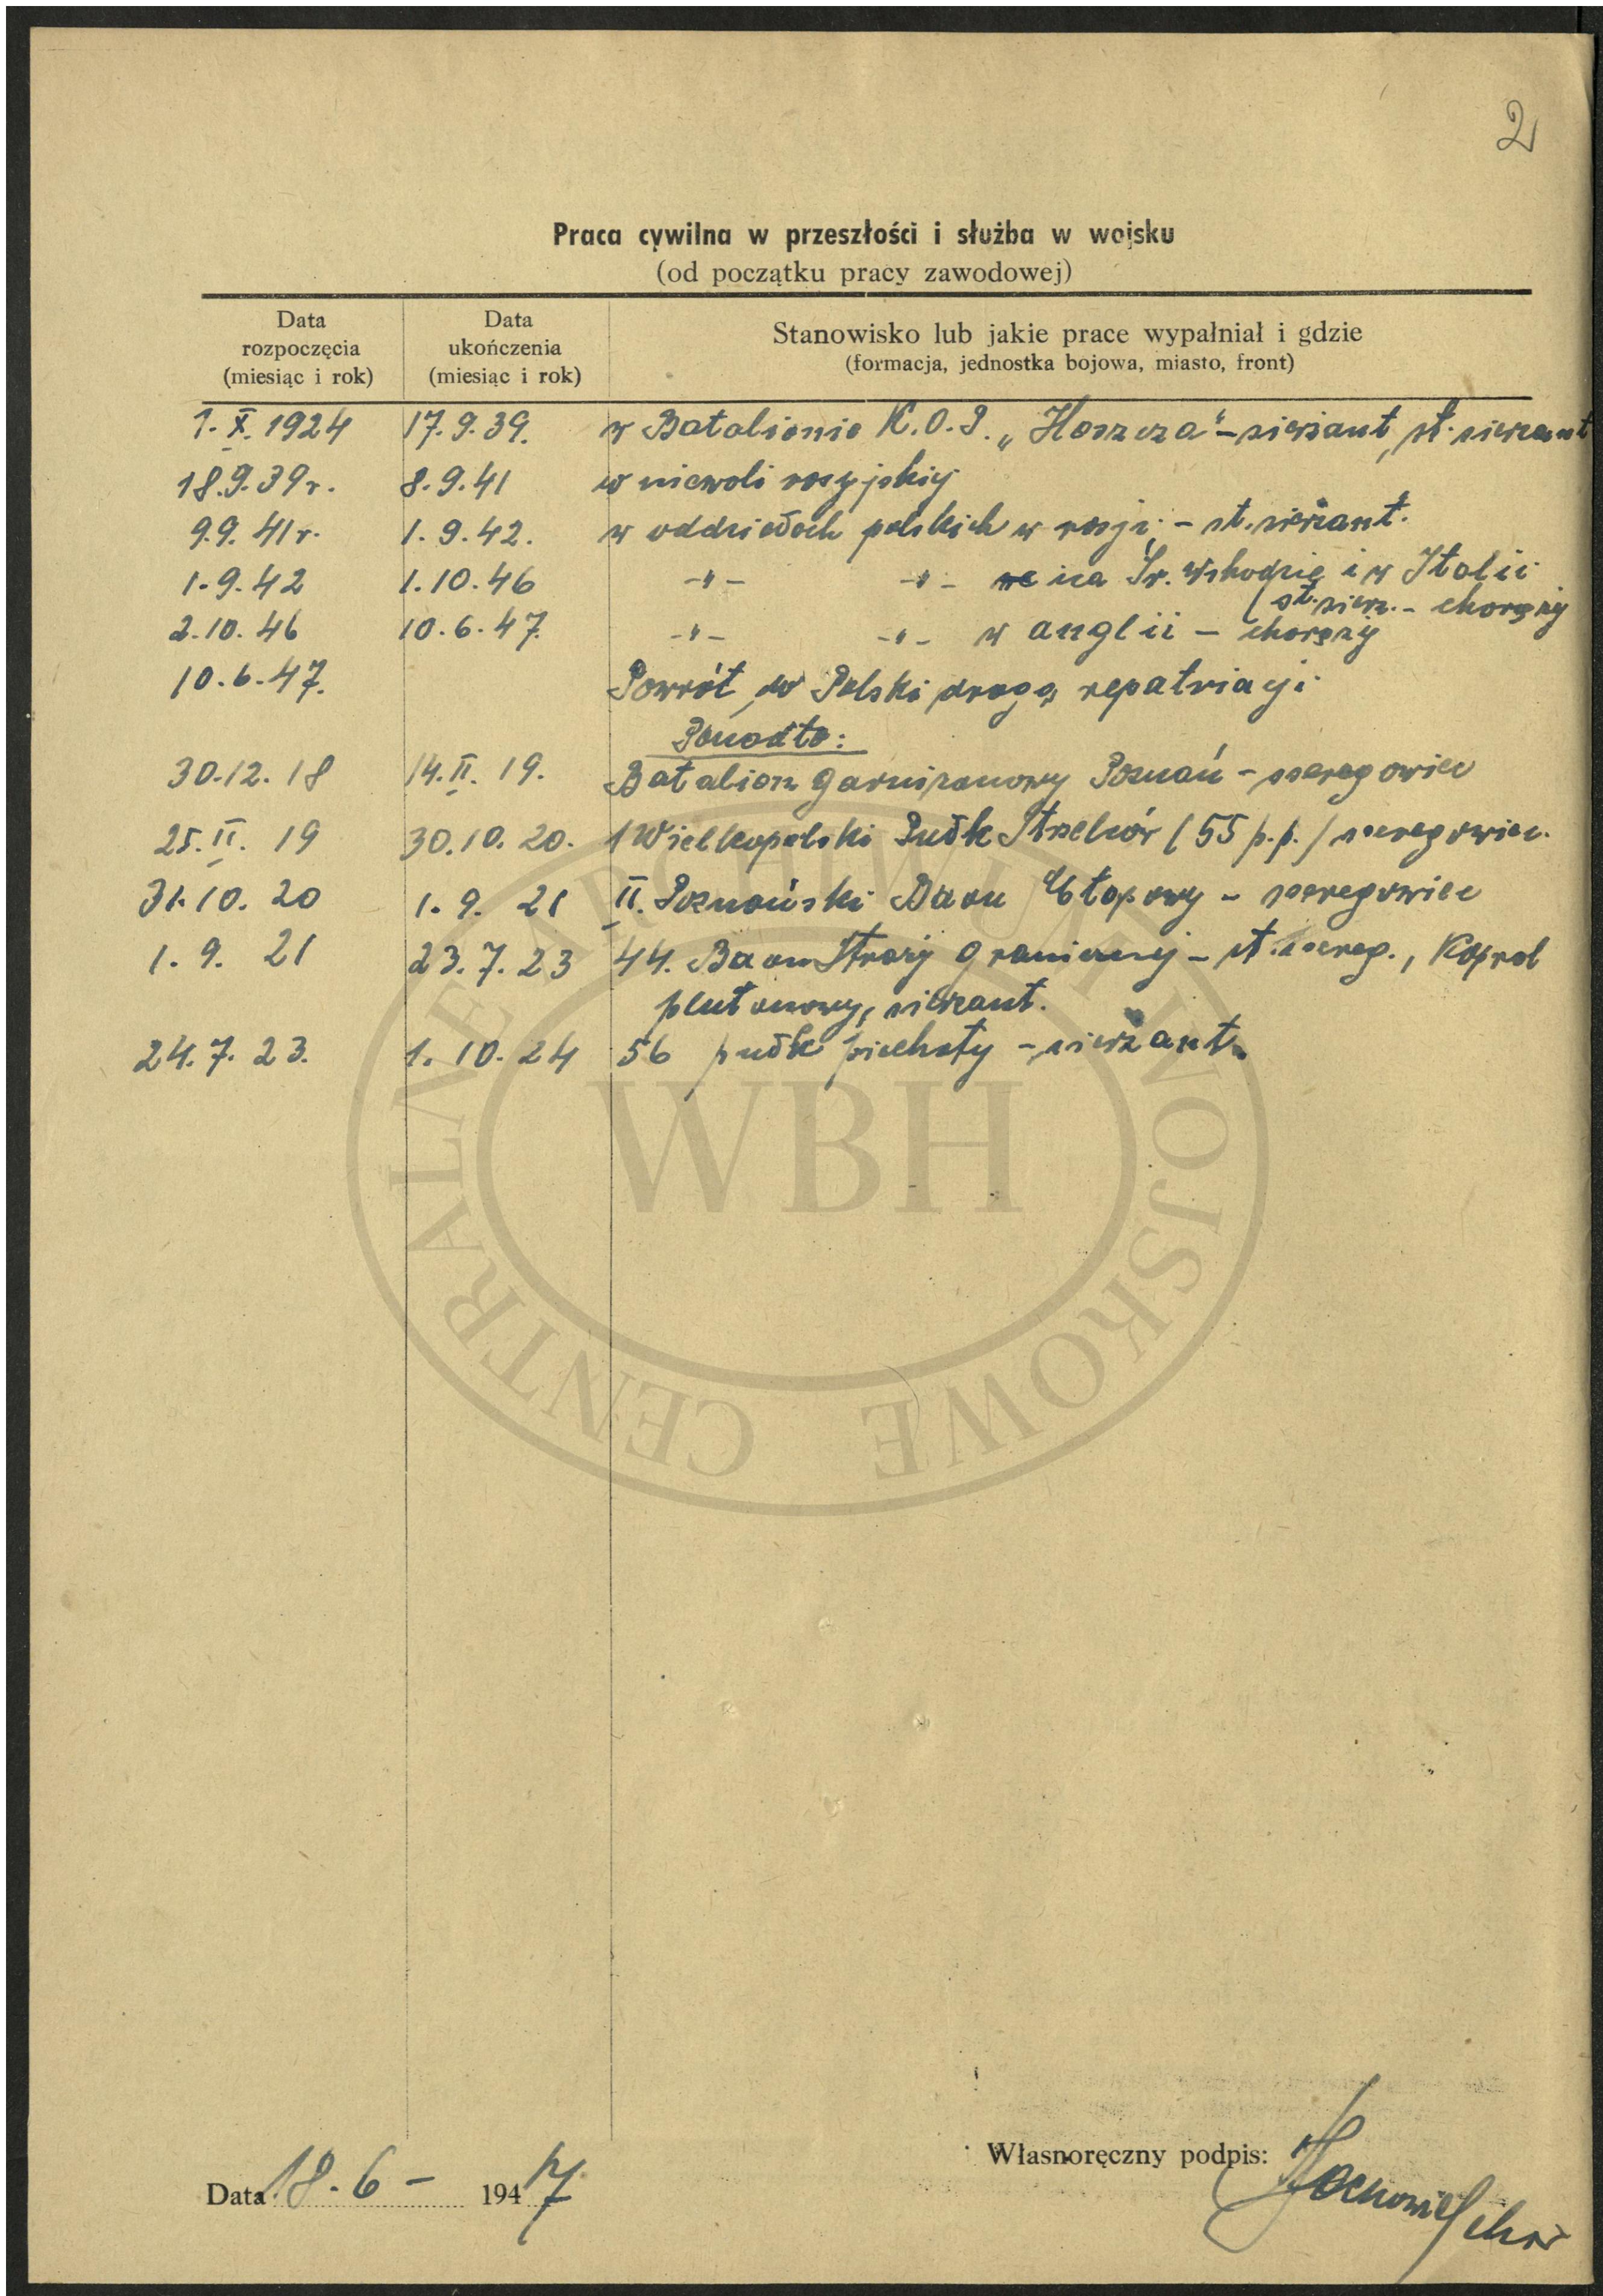 2
Praca cywilna w przeszłości i służba w wojsku
(od początku pracy zawodowej)
Data rozpoczęcia (miesiąc i rok) Data ukończenia (miesiąc i rok) Stanowisko lub jakie prace wypałniał i gdzie (formacja, jednostka bojowa, miasto, front)
1. X. 1924 17.9.39. w Batalionie K.O.P. „Hoszcza" – sierżant, st. sierżant
18.9.39 r. 8.9.41 w niewoli rosyjskiej
9.9.41 r. 1.9.42. w oddziałach polskich w rosji – st. sierżant.
1.9.42 1.10.46 –"– –"– na Śr. Wschodzie i w Italii
(st. sierż. – chorąży
2.10.46 10.6.47. –"– –"– w anglii – chorąży
10.6.47. Powrót do Polski drogą repatriacji
Ponadto:
30.12.18 14.II.19. Batalion Garnizonowy Poznań – szeregowiec
25.II.19 30.10.20. 1 Wielkopolski Pułk Strzelców (55 p.p./ szeregowiec.
31.10.20 1.9.21 II. Poznański Baon Etapowy – szeregowiec
1.9.21 23.7.23 44. Baon Straży Granicznej – st. szereg., Kaprol
plutonowy, sierżant.
24.7.23. 1.10.24 56 pułk piechoty – sierżant.
CENTRALNE ARCHIWUM WOJSKOWE
WBH
Data 18.6 – 1947
Własnoręczny podpis: